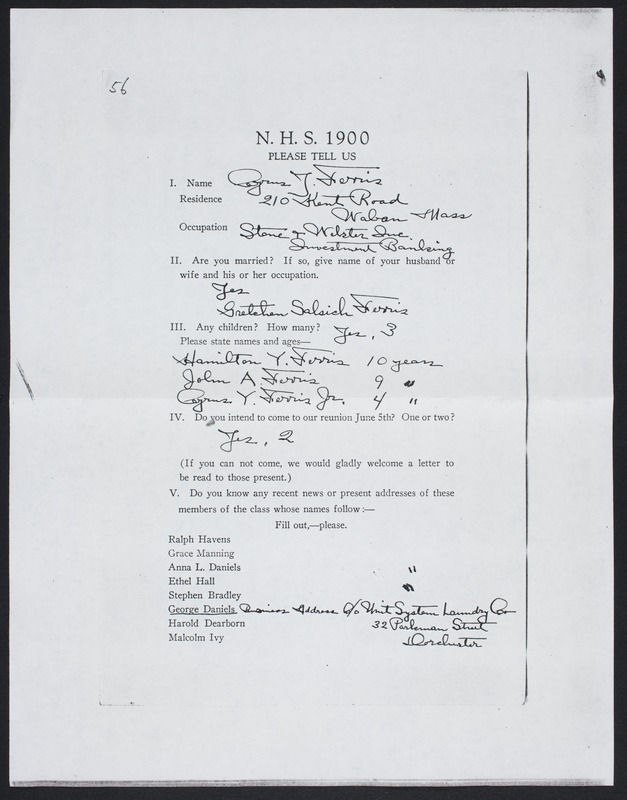 56
N. H. S. 1900
PLEASE TELL US
I. Name Cyrus Y. Ferris
Residence 210 Kent Road
Waban Mass
Occupation Stone & Webster Inc.
Investment Banking
II. Are you married? If so, give name of your husband or
wife and his or her occupation.
Yes
Gretchen Salsich Ferris
III. Any children? How many? Yes, 3
Please state names and ages—
Hamilton Y. Ferris 10 years
John A. Ferris 9 "
Cyrus Y. Ferris Jr. 4 "
IV. Do you intend to come to our reunion June 5th? One or two?
Yes, 2
(If you can not come, we would gladly welcome a letter to
be read to those present.)
V. Do you know any recent news or present addresses of these
members of the class whose names follow:—
Fill out,—please.
Ralph Havens
Grace Manning
Anna L. Daniels "
Ethel Hall "
Stephen Bradley
George Daniels Business Address c/o Unit System Laundry Co
Harold Dearborn 32 Parkman Street
Malcolm Ivy Dorchester